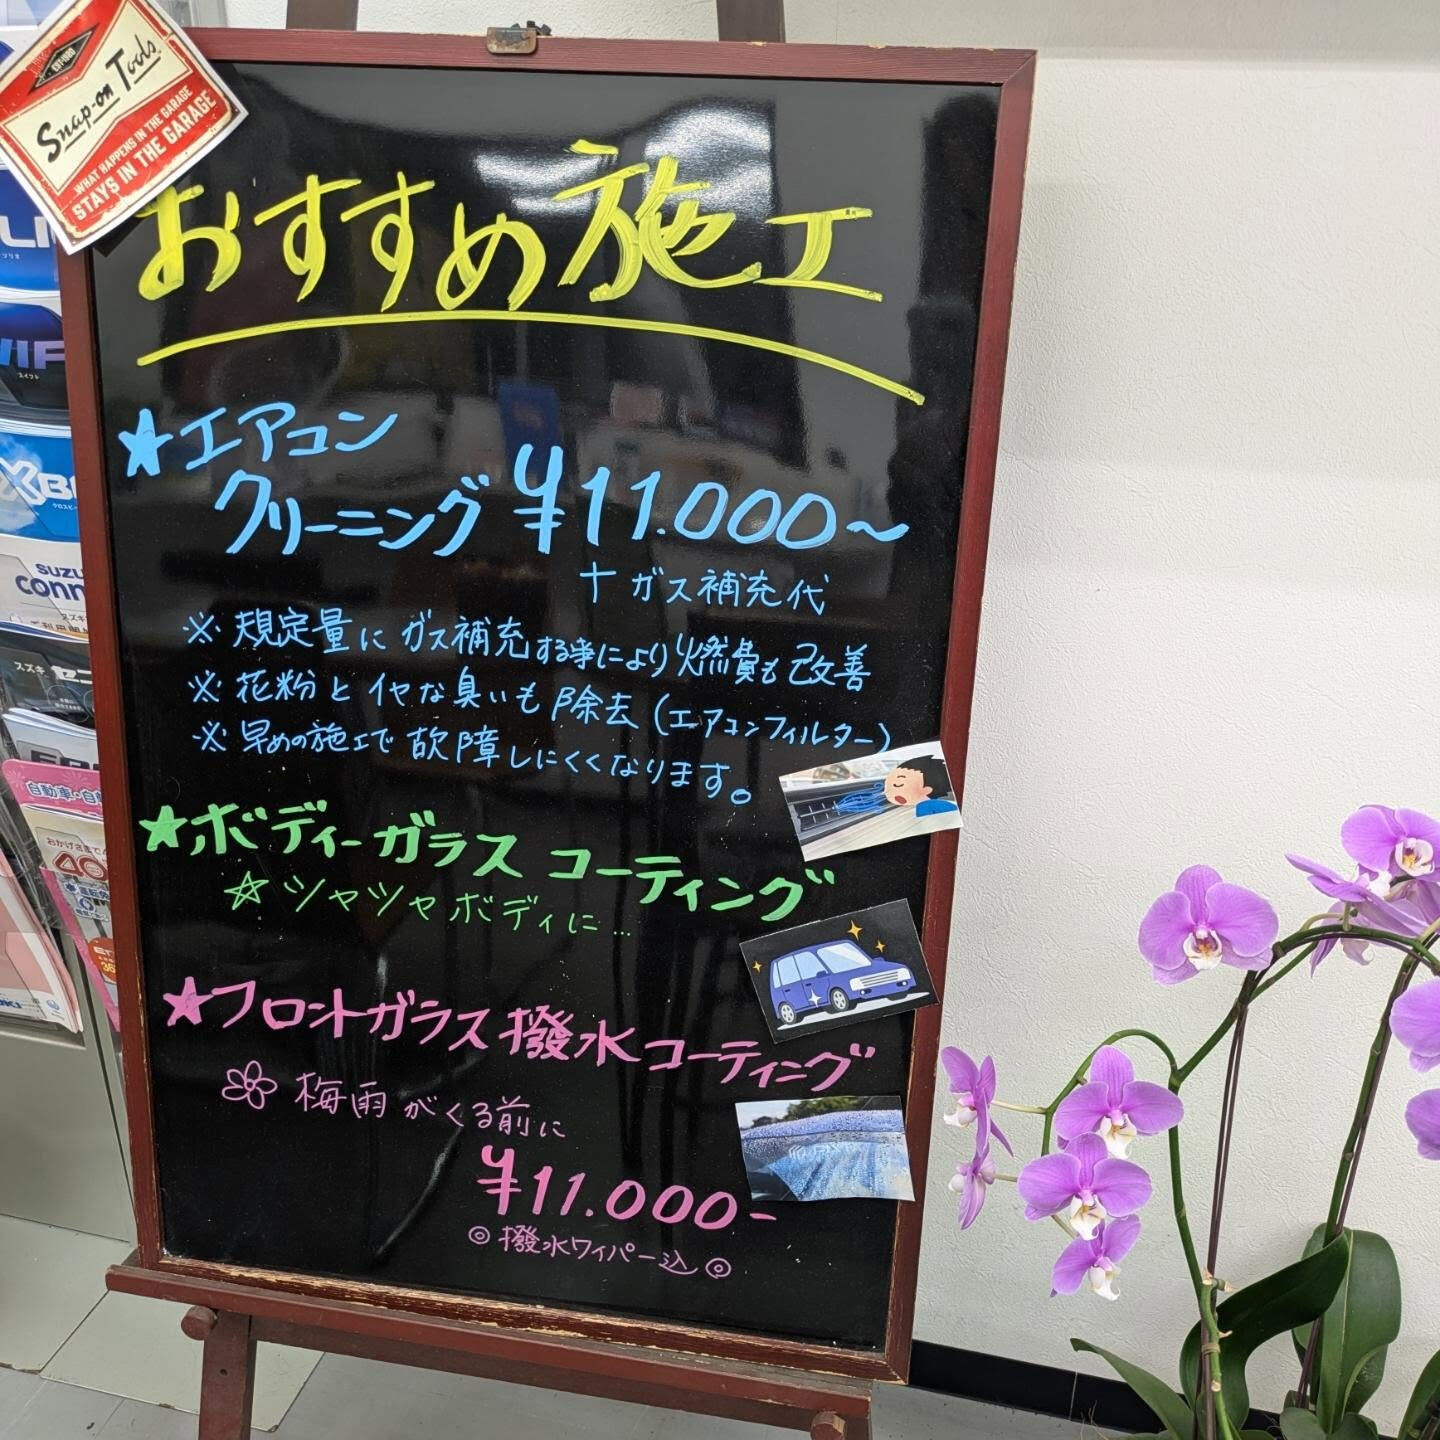 EST·1920
Snap-on Tools
WHAT HAPPENS IN THE GARAGE
STAYS IN THE GARAGE
おすすめ施工
★エアコン
クリーニング ¥11.000〜
+ ガス補充代
※ 規定量に ガス補充する事により 燃費も改善
※ 花粉とイヤな臭いも除去(エアコンフィルター)
※ 早めの施工で 故障しにくくなります。
★ボディーガラス コーティング
☆ツヤツヤボディに…
★フロントガラス撥水コーティング
梅雨がくる前に
¥11.000-
◎撥水ワイパー込◎
ソリオ
スイフト
XB
SUZU
conn
スズキ
自動車・自
おかげさまで
40